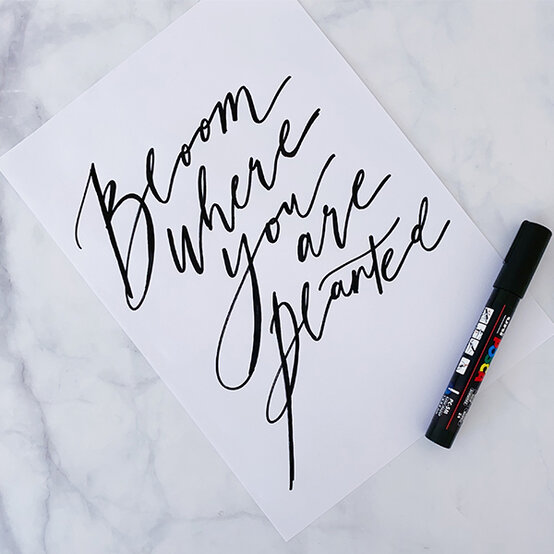 Bloom
where
you are
planted
POSCA
PC-5M